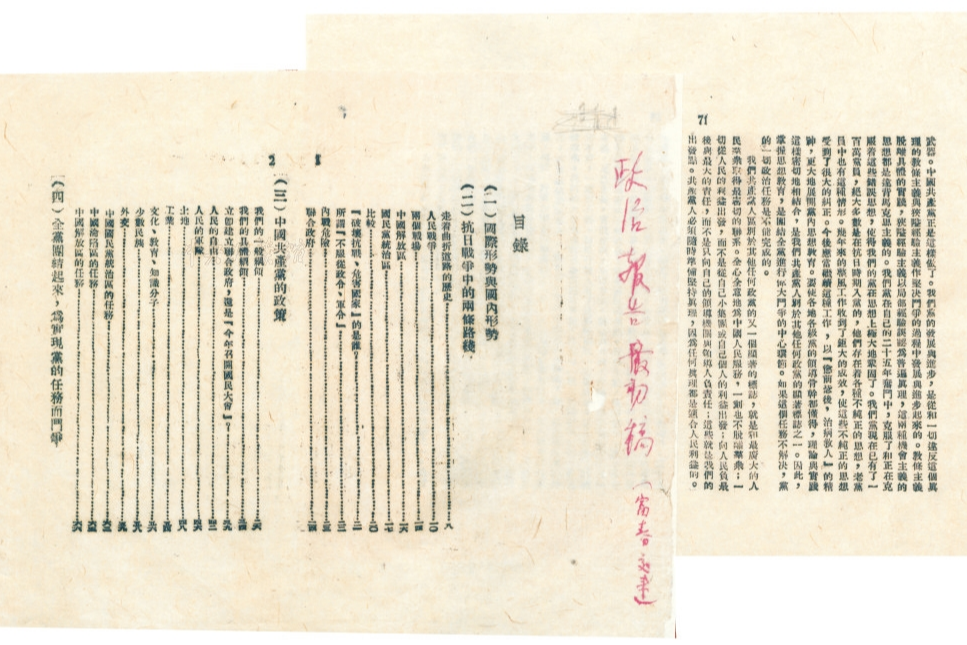 71
武器。中國共產黨正是這樣做了。我們黨的發展與進步,是從和一切違反這個眞
理的教條主義與狹隘經驗主義作堅決鬥爭的過程中發展與進步起來的。教條主義
脫離具體的實踐,狹隘經驗主義以局部經驗誤認爲普遍眞理,這兩種機會主義的
思想都是違背馬克思主義的。我們黨在自己的二十五年奮鬥中,克服了和正在克
服着這些錯誤思想,使得我們的黨在思想上極大地鞏固了。我們黨現在已有了一
百萬黨員,絕大多數是在抗日時期入黨的,他們存在着各種不純正的思想,老黨
員中也有這種情形。幾年來的整風工作收到了鉅大的成效,使這些不純正的思想
受到了很大的糾正。今後應當繼續這種工作,以『懲前毖後,治病救人』的精
神,更大地展開黨內思想教育。要使各地各級黨的領導骨幹都懂得,理論與實踐
這樣密切地相結合,是我們共產黨人區別於其他任何政黨的顯著標誌之一。因此,
掌握思想教育,是團結全黨進行偉大鬥爭的中心環節。如果這個任務不解決,黨
的一切政治任務是不能完成的。
我們共產黨人區別於其他任何政黨的又一個顯著的標誌,就是和最廣大的人
民羣衆取得最密切的聯系。全心全意地爲中國人民服務,一刻也不脫離羣衆;一
切從人民的利益出發,而不是從自己小集團或自己個人的利益出發;向人民負最
後與最大的責任,而不是只向自己的領導機關與領導人負責任;這些就是我們的
出發點。共產黨人必須隨時準備堅持眞理,因爲任何眞理都是適合人民利益的。
政治報告最初稿
(富春交來)
目錄
(一)國際形勢與國內形勢
(二)抗日戰爭中的兩條路綫
走着曲折道路的歷史 八
人民戰爭 一〇
兩個戰場 一四
中國解放區 一六
國民黨統治區 一七
比較 二〇
『破壞抗戰、危害國家』的是誰? 二一
所謂『不服從政令、軍令』 二二
內戰危險 二三
聯合政府 二四
(三)中國共產黨的政策
我們的一般綱領
我們的具體綱領
立即建立聯合政府,還是『今年召開國民大會』?
人民的自由
人民的軍隊
土地
工業
文化、敎育、知識分子
少數民族
外交
中國國民黨統治區的任務
中國淪陷區的任務
中國解放區的任務
(四)全黨團結起來,爲實現黨的任務而鬥爭